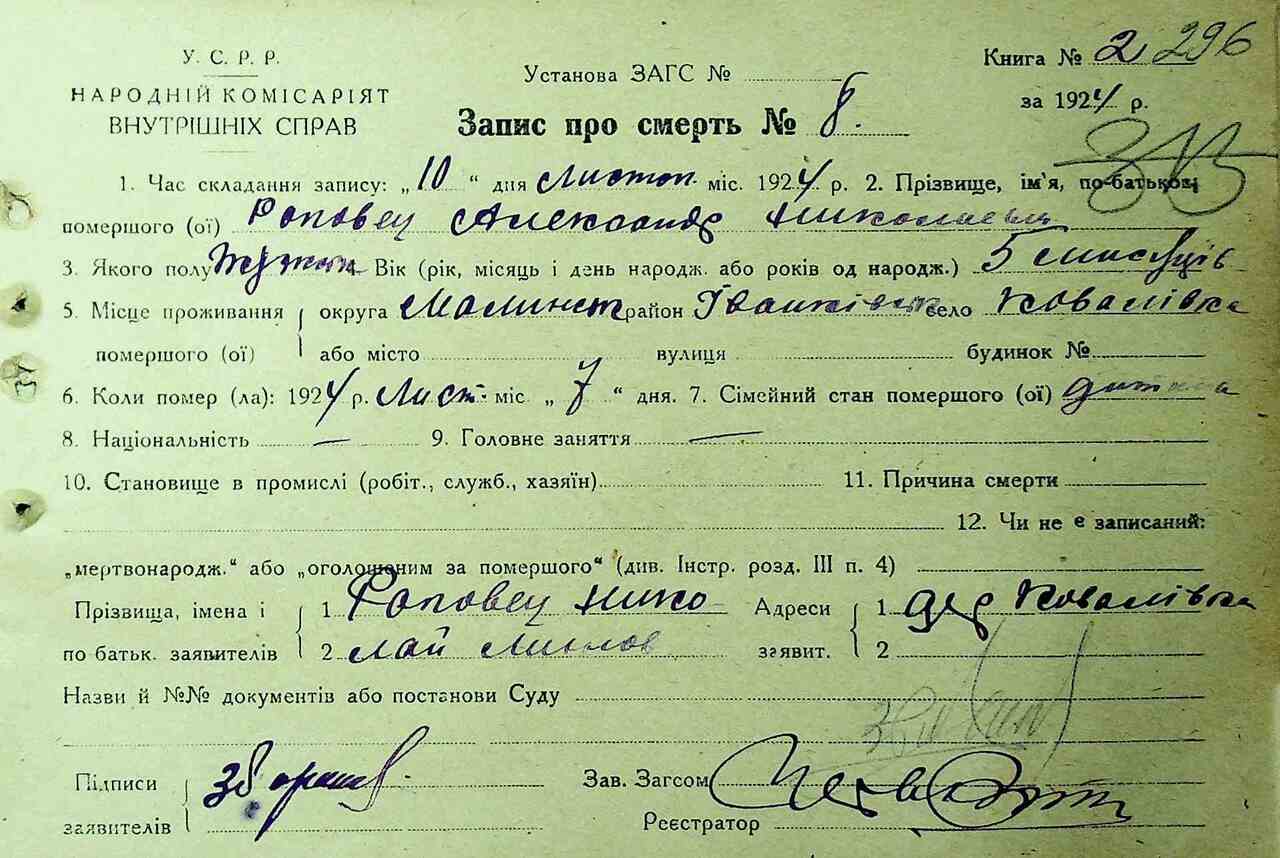 У. С. Р. Р.
НАРОДНІЙ КОМІСАРІЯТ
ВНУТРІШНІХ СПРАВ
Установа ЗАГС №
Книга № 2 296
за 1924 р.
Запис про смерть № 8.
1. Час складання запису: „ 10 “ дня Листоп. міс. 1924 р. 2. Прізвище, ім'я, по-батькові
помершого (ої) Роповец Александр
3. Якого полу 4. Вік (рік, місяць і день народж. або років од народж.) 5 місяців
5. Місце проживання округа Малинск район Іванківск село Ковалівка
помершого (ої) або місто вулиця будинок №
6. Коли помер (ла): 1924 р. Лист. міс „ 7 “ дня. 7. Сімейний стан помершого (ої) дитина
8. Національність — 9. Головне заняття —
10. Становище в промислі (робіт., служб., хазяїн) 11. Причина смерти
12. Чи не є записаний:
„мертвонародж.“ або „оголошеним за помершого“ (див. Інстр. розд. III п. 4)
Прізвища, імена і 1 Роповец Нико Адреси 1 дер Ковалівка
по батьк. заявителів 2 лай заявит. 2
Назви й №№ документів або постанови Суду
Підписи Зав. Загсом
заявителів Реєстратор